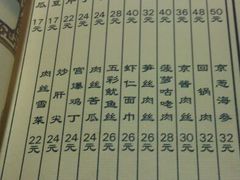 50元
48元
36元
40元
32元
40元
28元
24元
22元
丁
17元
豆
17元
瓜
京葱海参 32元
回锅肉 32元
京酱肉丝 30元
菠萝咕咾肉 28元
笋丝肉丝 26元
虾仁面巾 26元
五彩鱿鱼丝 26元
肉丝苦瓜 24元
宫爆鸡丁 24元
炒肝尖 24元
肉丝雪菜 22元